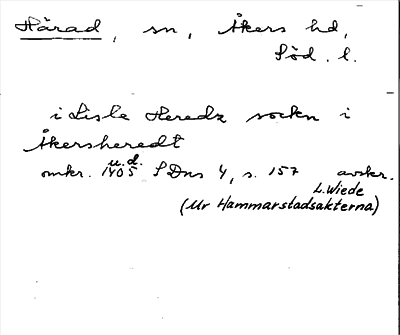 Härad, sn, Åkers hd,
Söd. l.
i Lisle Heredz sockn i
Åkersheredt
u.d.
omkr. 1405 SDns 4, s. 157 avskr.
L. Wiede
(Ur Hammarstadsakterna)